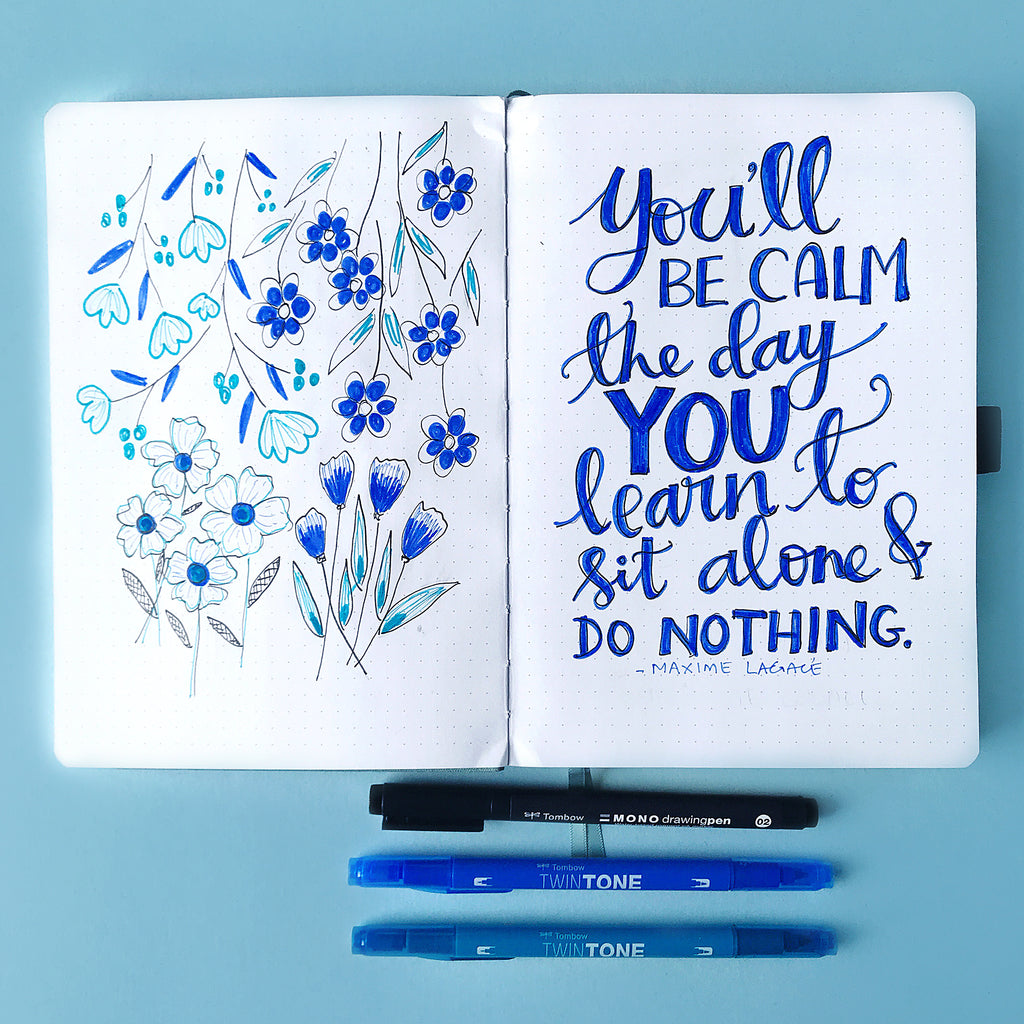 You'll
BE CALM
the day
YOU
learn to
sit alone &
DO NOTHING.
- MAXIME LAGACÉ
Tombow MONO drawingpen 02
Tombow
TWINTONE
Tombow
TWINTONE